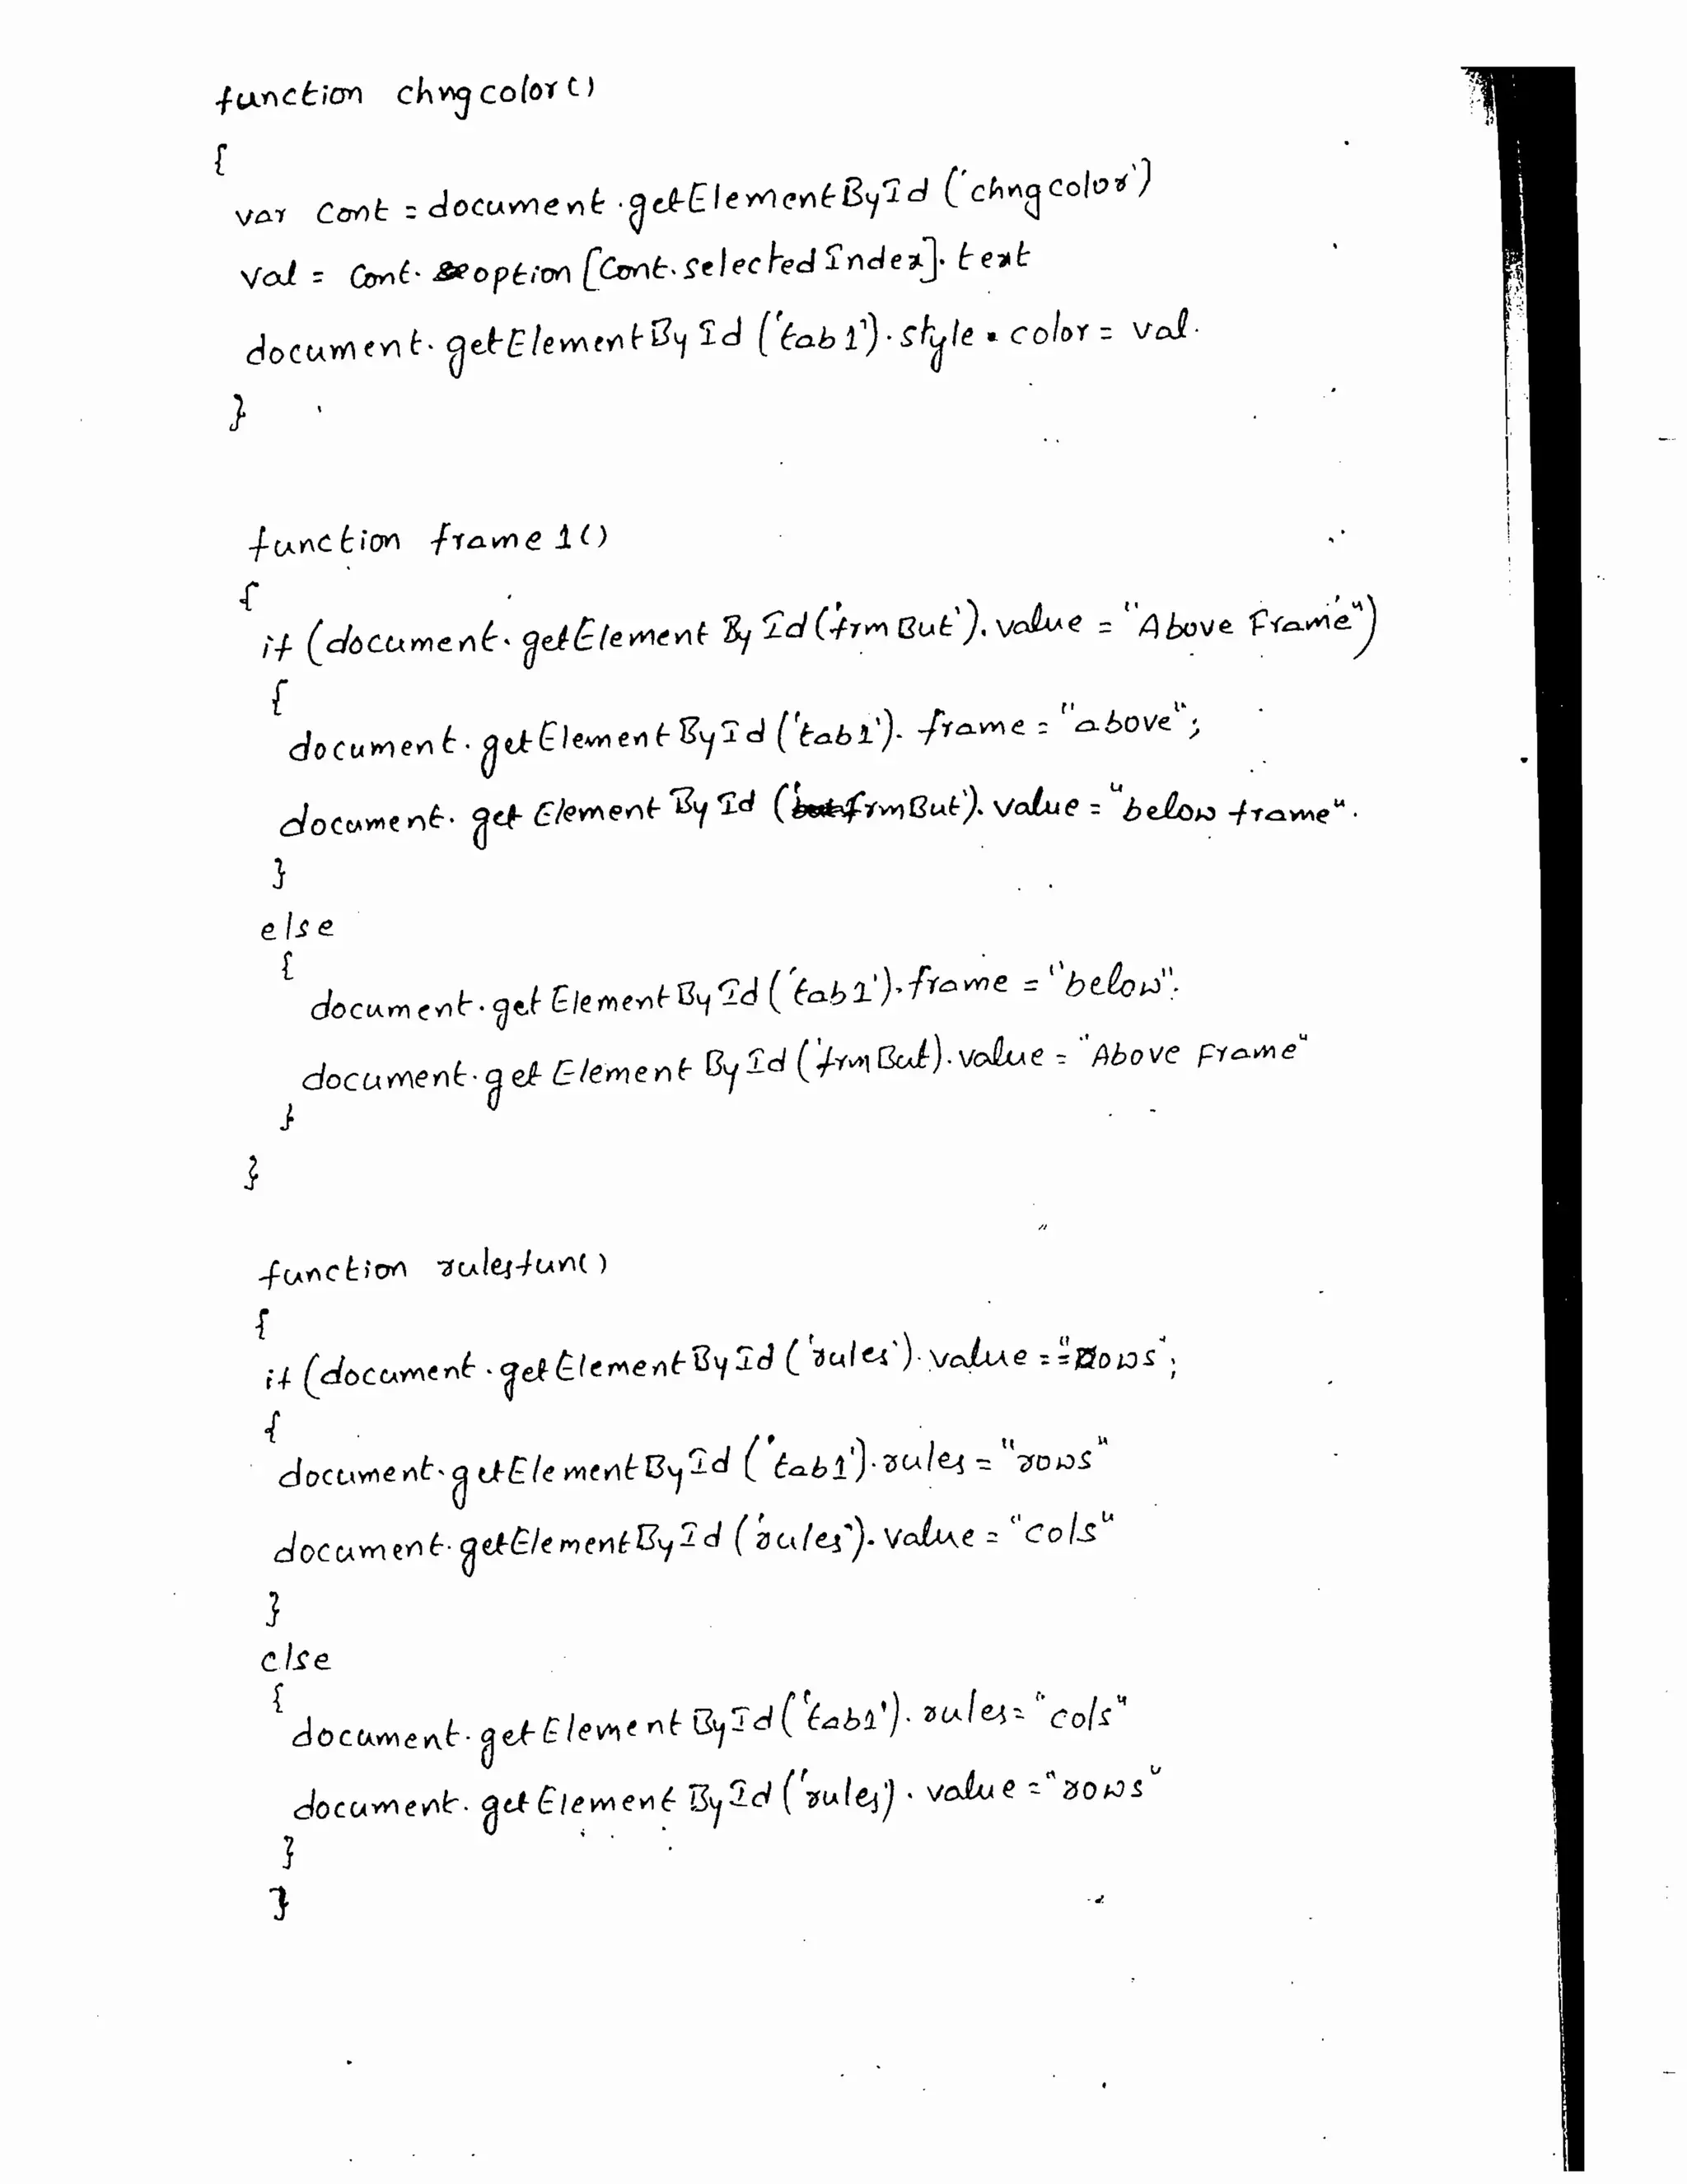 function chngcolor()
{
var Cont = document.getElementById ('chngcolor')
val = Cont. option [Cont.selectedIndex]. text
document.getElementById ('tab1').style.color = val.
}
function frame1()
{
if (document.getElementById('frmBut').value = "Above Frame")
{
document.getElementById ('tab1'). frame = "above";
document.getElementById ('frmBut').value = "below frame".
}
else
{
document.getElementById ('tab1').frame = "below".
document.getElementById ('frmBut).value = "Above Frame"
}
}
function rulesfun()
{
if (document.getElementById ('rules').value == "rows";
{
document.getElementById ('tab1').rules = "rows"
document.getElementById ('rules').value = "cols"
}
else
{
document.getElementById('tab1').rules = "cols"
document.getElementById ('rules').value = "rows"
}
}